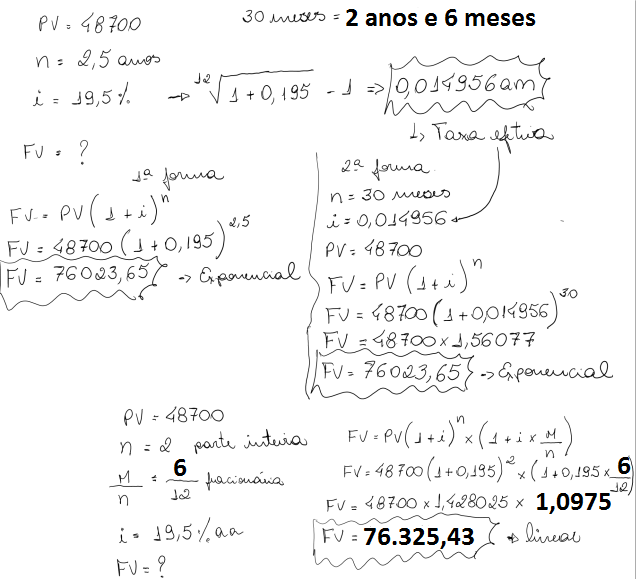 PV = 48700
30 meses = 2 anos e 6 meses
n = 2,5 anos
i = 19,5% → ¹²√1 + 0,195 - 1 => 0,014956 am
↳ Taxa efetiva
FV = ?
1ª forma
FV = PV(1+i)ⁿ
FV = 48700(1+0,195)^2,5
FV = 76023,65 → Exponencial
2ª forma
n = 30 meses
i = 0,014956
PV = 48700
FV = PV(1+i)ⁿ
FV = 48700(1+0,014956)^30
FV = 48700 x 1,56077
FV = 76023,65 → Exponencial
PV = 48700
n = 2 parte inteira
M/n = 6/12 fracionária
i = 19,5% aa
FV = ?
FV = PV(1+i)ⁿ x (1 + i x M/n)
FV = 48700(1+0,195)² x (1+0,195 x 6/12)
FV = 48700 x 1,428025 x 1,0975
FV = 76.325,43 → linear